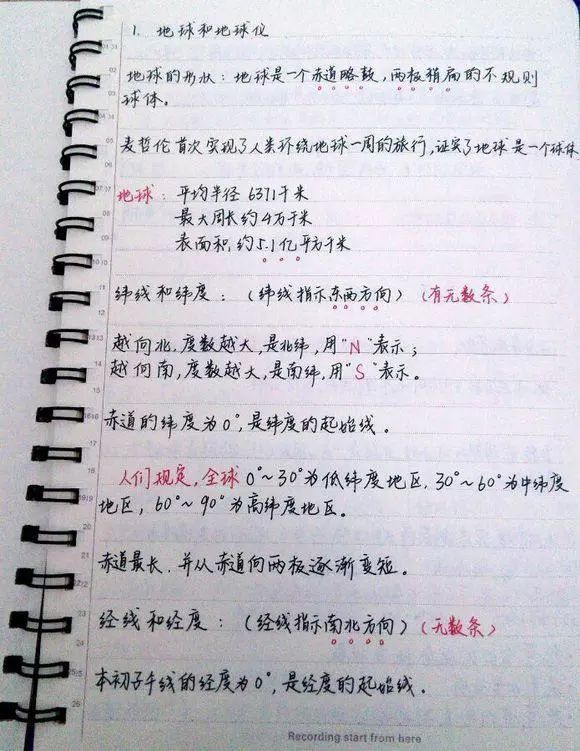 1. 地球和地球仪
地球的形状：地球是一个赤道略鼓，两极稍扁的不规则
球体。
麦哲伦首次实现了人类环绕地球一周的旅行，证实了地球是一个球体
地球：平均半径 6371千米
最大周长约4万千米
表面积，约5.1亿平方千米
纬线和纬度：（纬线指示东西方向）（有无数条）
越向北，度数越大，是北纬，用"N"表示；
越向南，度数越大，是南纬，用"S"表示。
赤道的纬度为0°，是纬度的起始线。
人们规定，全球0°~30°为低纬度地区，30°~60°为中纬度
地区，60°~90°为高纬度地区。
赤道最长，并从赤道向两极逐渐变短。
经线和经度：（经线指示南北方向）（无数条）
本初子午线的经度为0°，是经度的起始线。
Recording start from here